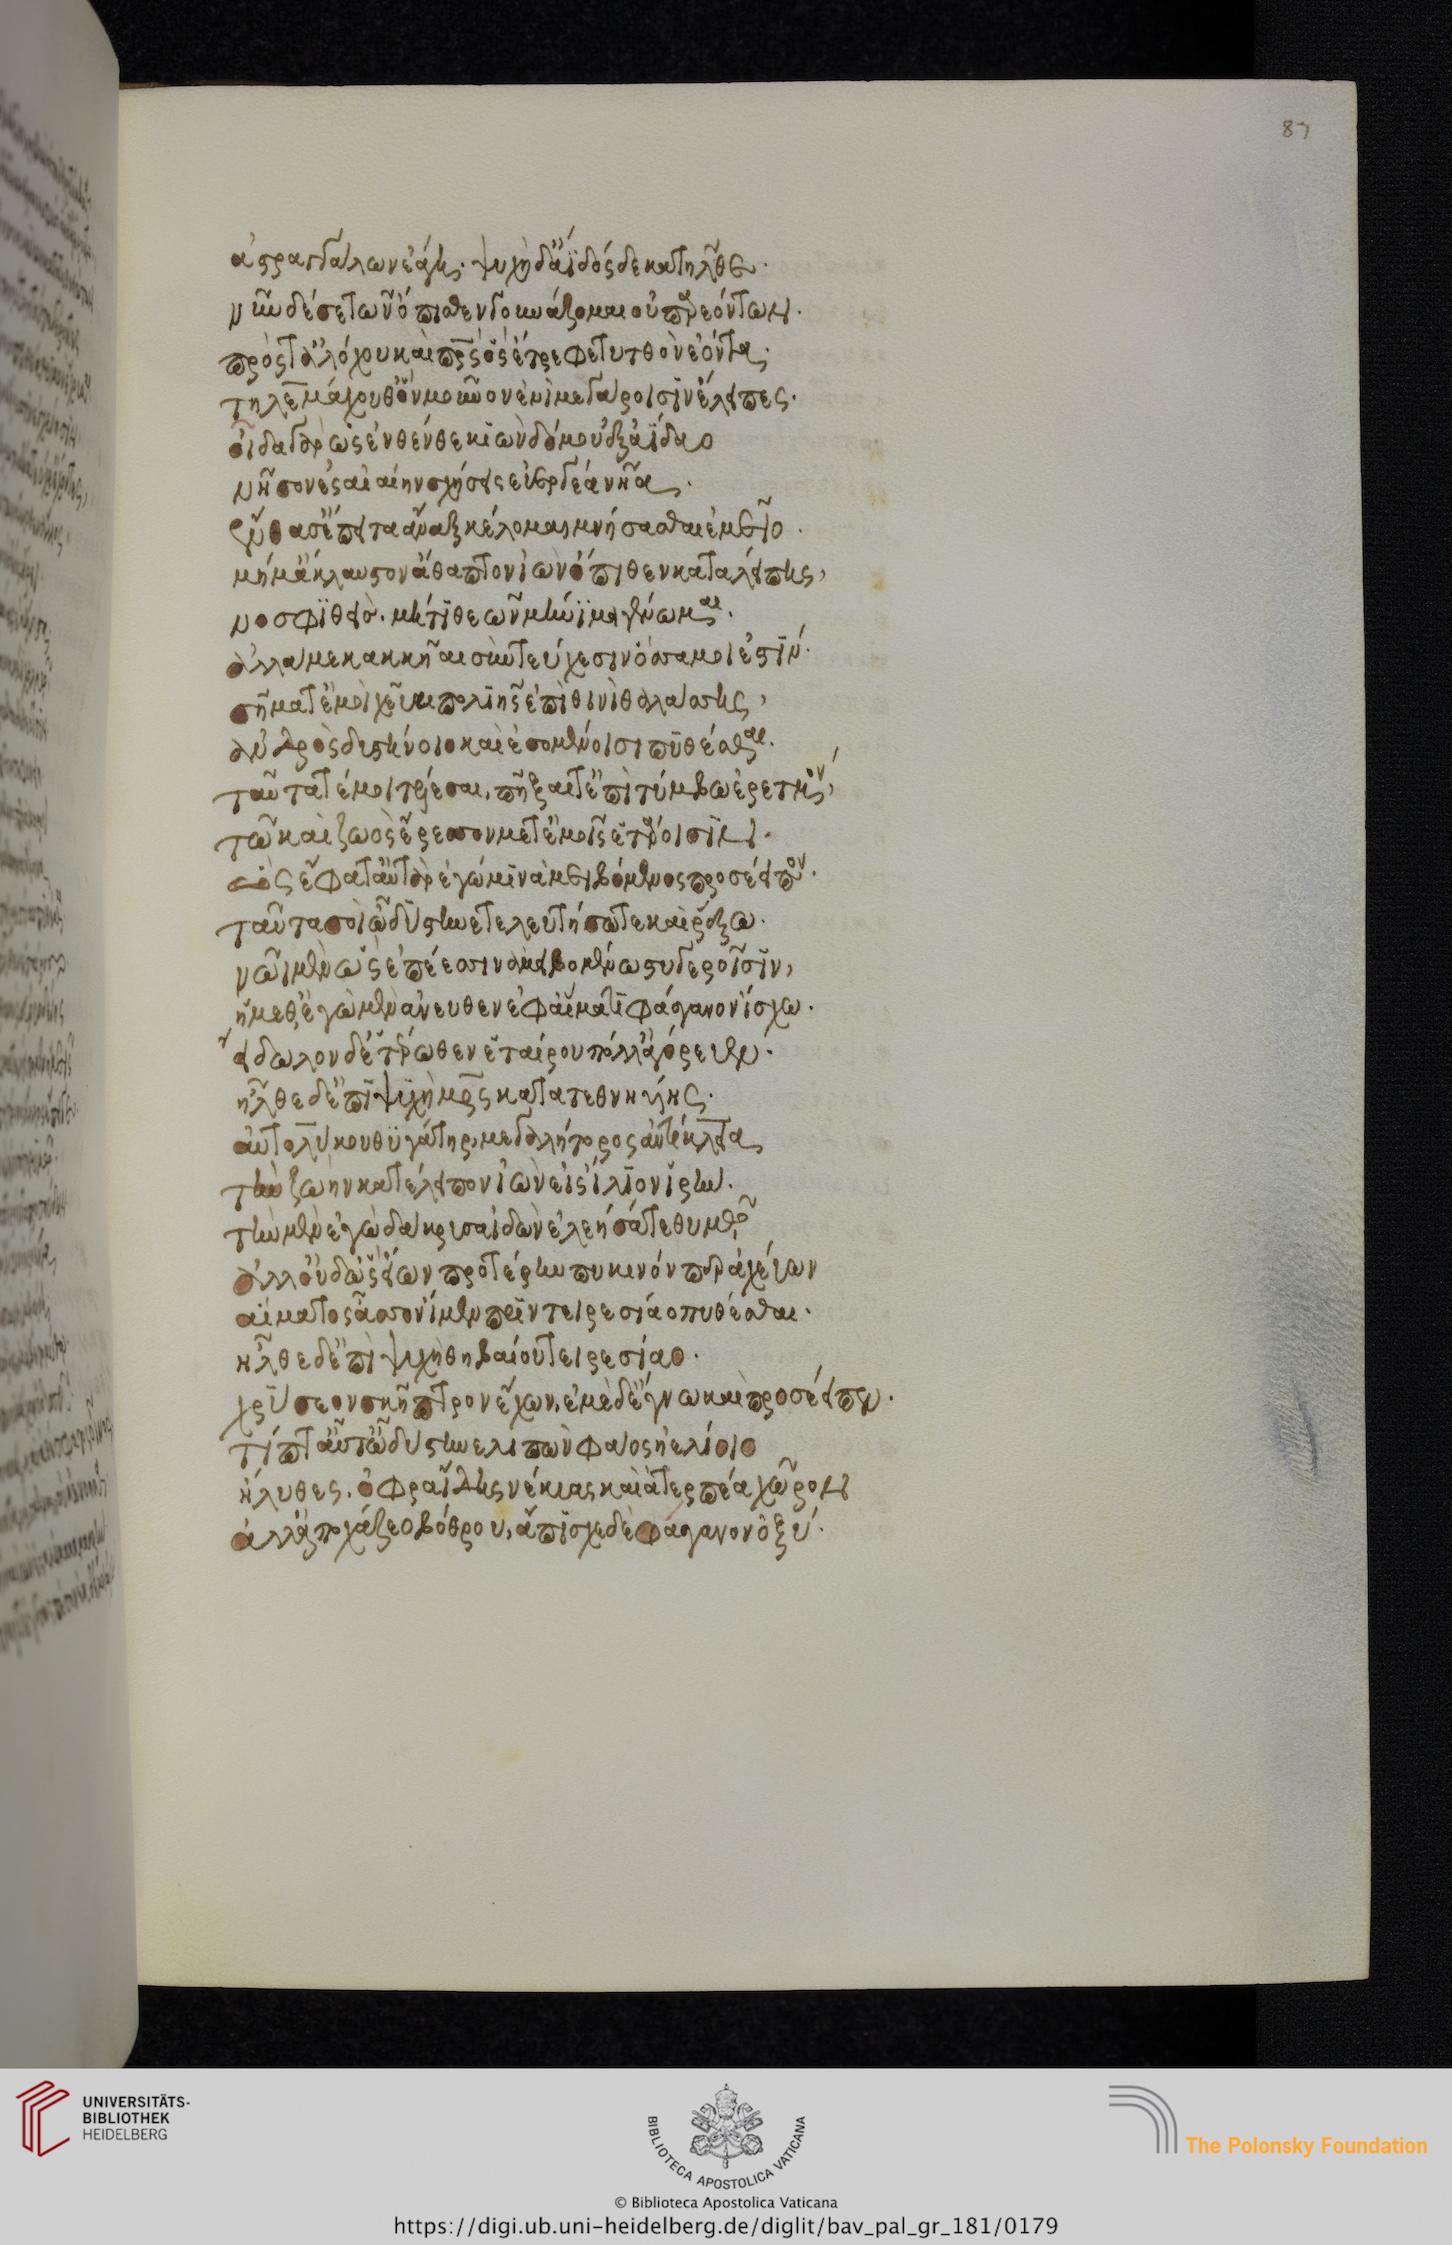 87
ἀστραγάλων ἐάγη. ψυχὴ δ' ἄϊδόσδε κατῆλθε.
νῦν δέ σε τῶν ὄπιθεν γουνάζομαι οὐ παρεόντων.
πρός τ' ἀλόχου καὶ πατρὸς ὅς ἔτρεφε τυτθὸν ἐόντα,
τηλεμάχου θ' ὃν μοῦνον ἐνὶ μεγάροισιν ἔλειπες.
οἶδα γὰρ ὡς ἐνθένθε κιὼν δόμου ἐξ ἀΐδαο
νῆσον ἐς αἰαίην σχήσεις εὐεργέα νῆα.
ἔνθα σ' ἔπειτα ἄναξ κέλομαι μνήσασθαι ἐμεῖο.
μή μ' ἄκλαυστον ἄθαπτον ἰὼν ὄπιθεν καταλείπης,
νοσφισθείς. μή τί θεῶν μήνιμα γένωμαι.
ἀλλά με κακκῆαι σὺν τεύχεσιν ὅσσα μοι ἐστίν.
σῆμά τέ μοι χεῦαι πολιῆς ἐπὶ θινὶ θαλάσσης,
ἀνδρὸς δυστήνοιο καὶ ἐσομένοισι πυθέσθαι.
ταῦτά τέ μοι τελέσαι, πῆξαί τ' ἐπὶ τύμβω ἐρετμόν,
τῶ καὶ ζωὸς ἔρεσσον μετ' ἐμοῖς ἑτάροισιν.
ὣς ἔφατ' αὐτὰρ ἐγώ μιν ἀμειβόμενος προσέειπον.
ταῦτά σοι ὦ δύστηνε τελευτήσω τε καὶ ἔρξω.
νῶι μὲν ὣς ἐπέεσσιν ἀμειβομένω στυγεροῖσιν,
ἥμεθ' ἐγὼ μὲν ἄνευθεν ἐφ' αἵματι φάσγανον ἴσχω.
εἴδωλον δ' ἑτέρωθεν ἑταίρου πόλλ' ἀγόρευεν.
ἦλθε δ' ἐπὶ ψυχὴ μητρὸς κατατεθνηυίης.
αὐτολύκου θυγάτηρ, μεγαλήτορος ἀντίκλεια
τὴν ζωὴν κατέλειπον ἰὼν εἰς ἴλιον ἱρήν.
τὴν μὲν ἐγὼ δάκρυσα ἰδὼν ἐλέησά τε θυμῶ
ἀλλ' οὐδ' ὣς εἴων προτέρην πυκινόν περ ἀχέυων
αἵματος ἆσσον ἴμεν πρὶν τειρεσίαο πυθέσθαι.
ἦλθε δ' ἐπὶ ψυχὴ θηβαίου τειρεσίαο.
χρύσεον σκῆπτρον ἔχων, ἐμὲ δ' ἔγνω καὶ προσέειπεν.
τίπτ' αὖτ' ὦ δύστηνε λιπὼν φάος ἠελίοιο
ἤλυθες. ὄφρα ἴδης νέκυας καὶ ἀτερπέα χῶρον
ἀλλ' ἀποχάζεο βόθρου, ἄπισχε δὲ φάσγανον ὀξύ.
UNIVERSITÄTS-
BIBLIOTHEK
HEIDELBERG
BIBLIOTECA APOSTOLICA VATICANA
© Biblioteca Apostolica Vaticana
The Polonsky Foundation
https://digi.ub.uni-heidelberg.de/diglit/bav_pal_gr_181/0179